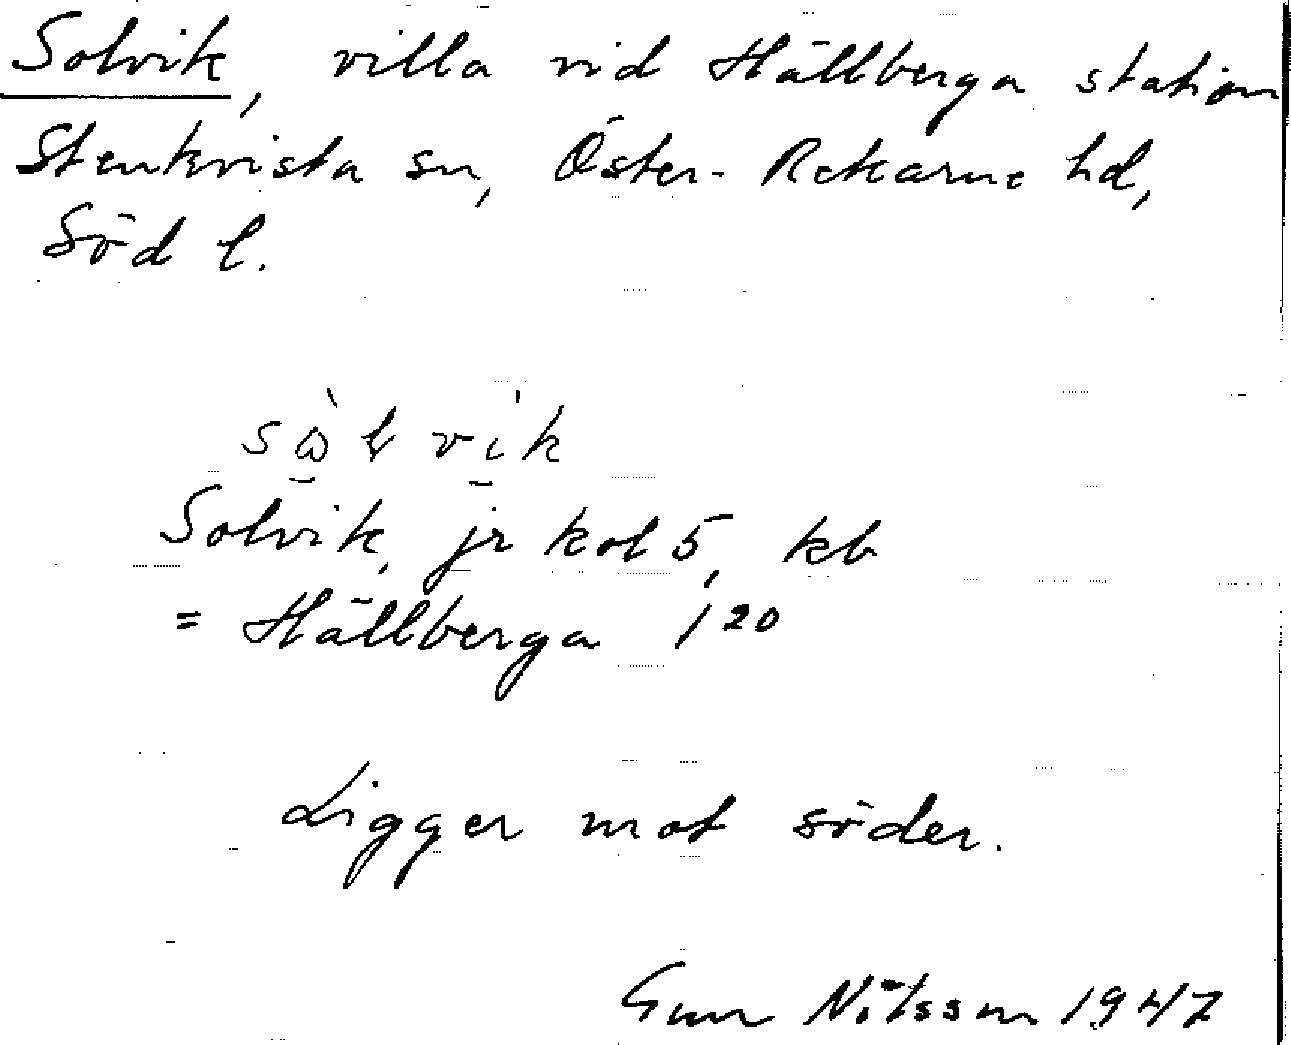 Solvik, villa vid Hällberga station
Stenkvista sn, Öster-Rekarne hd,
Söd l.
Solvik, jr kol 5, kb
= Hällberga 1 20
Ligger mot söder.
Gun Nilsson 1947